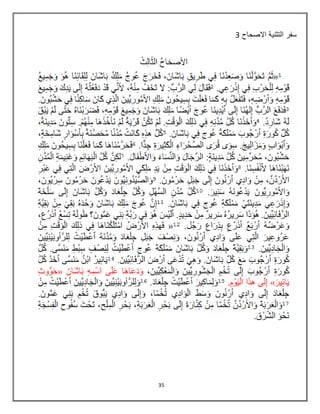 سفر التثنية الاصحاح 3
اَلأَصْحَاحُ الثَّالِثُ
1«ثُمَّ تَحَوَّلْنَا وَصَعِدْنَا فِي طَرِيقِ بَاشَانَ، فَخَرَجَ عُوجُ مَلِكُ بَاشَانَ لِلِقَائِنَا هُوَ وَجَمِيعُ
قَوْمِهِ لِلْحَرْبِ فِي إِذْرَعِي. 2فَقَالَ لِي الرَّبُّ: لاَ تَخَفْ مِنْهُ، لأَنِّي قَدْ دَفَعْتُهُ إِلَى يَدِكَ وَجَمِيعَ
قَوْمِهِ وَأَرْضِهِ، فَتَفْعَلُ بِهِ كَمَا فَعَلْتَ بِسِيحُونَ مَلِكِ الأَمُورِيِّينَ الَّذِي كَانَ سَاكِنًا فِي حَشْبُونَ.
3فَدَفَعَ الرَّبُّ إِلهُنَا إِلَى أَيْدِينَا عُوجَ أَيْضًا مَلِكَ بَاشَانَ وَجَمِيعَ قَوْمِهِ، فَضَرَبْنَاهُ حَتَّى لَمْ يَبْقَ
لَهُ شَارِدٌ. 4وَأَخَذْنَا كُلَّ مُدُنِهِ فِي ذلِكَ الْوَقْتِ. لَمْ تَكُنْ قَرْيَةٌ لَمْ نَأْخُذْهَا مِنْهُمْ. سِتُّونَ مَدِينَةً،
كُلُّ كُورَةِ أَرْجُوبَ مَمْلَكَةُ عُوجَ فِي بَاشَانَ. 5كُلُّ هذِهِ كَانَتْ مُدُنًا مُحَصَّنَةً بِأَسْوَارٍ شَامِخَةٍ،
وَأَبْوَابٍ وَمَزَالِيجَ. سِوَى قُرَى الصَّحْرَاءِ الْكَثِيرَةِ جِدًّا. 6فَحَرَّمْنَاهَا كَمَا فَعَلْنَا بِسِيحُونَ مَلِكِ
حَشْبُونَ، مُحَرِّمِينَ كُلَّ مَدِينَةٍ: الرِّجَالَ وَالنِّسَاءَ وَالأَطْفَالَ. 7لكِنَّ كُلَّ الْبَهَائِمِ وَغَنِيمَةِ الْمُدُنِ
نَهَبْنَاهَا لأَنْفُسِنَا. 8وَأَخَذْنَا فِي ذلِكَ الْوَقْتِ مِنْ يَدِ مَلِكَيِ الأَمُورِيِّينَ الأَرْضَ الَّتِي فِي عَبْرِ
الأُرْدُنِّ، مِنْ وَادِي أَرْنُونَ إِلَى جَبَلِ حَرْمُونَ. 9وَالصِّيدُونِيُّونَ يَدْعُونَ حَرْمُونَ سِرْيُونَ،
وَالأَمُورِيُّونَ يَدْعُونَهُ سَنِيرَ. 10كُلَّ مُدُنِ السَّهْلِ وَكُلَّ جِلْعَادَ وَكُلَّ بَاشَانَ إِلَى سَلْخَةَ
وَإِذْرَعِي مَدِينَتَيْ مَمْلَكَةِ عُوجَ فِي بَاشَانَ. 11إِنَّ عُوجَ مَلِكَ بَاشَانَ وَحْدَهُ بَقِيَ مِنْ بَقِيَّةِ
الرَّفَائِيِّينَ. هُوَذَا سَرِيرُهُ سَرِيرٌ مِنْ حَدِيدٍ. أَلَيْسَ هُوَ فِي رَبَّةِ بَنِي عَمُّونَ؟ طُولُهُ تِسْعُ أَذْرُعٍ،
وَعَرْضُهُ أَرْبَعُ أَذْرُعٍ بِذِرَاعِ رَجُل. 12فَهذِهِ الأَرْضُ امْتَلَكْنَاهَا فِي ذلِكَ الْوَقْتِ مِنْ
عَرُوعِيرَ الَّتِي عَلَى وَادِي أَرْنُونَ، وَنِصْفَ جَبَلِ جِلْعَادَ وَمُدُنَهُ أَعْطَيْتُ لِلرَّأُوبَيْنِيِّينَ
وَالْجَادِيِّينَ. 13وَبَقِيَّةَ جِلْعَادَ وَكُلَّ بَاشَانَ مَمْلَكَةَ عُوجَ أَعْطَيْتُ لِنِصْفِ سِبْطِ مَنَسَّى. كُلَّ
كُورَةِ أَرْجُوبَ مَعَ كُلِّ بَاشَانَ. وَهِيَ تُدْعَى أَرْضَ الرَّفَائِيِّينَ. 14يَائِيرُ ابْنُ مَنَسَّى أَخَذَ كُلَّ
كُورَةِ أَرْجُوبَ إِلَى تُخُمِ الْجَشُورِيِّينَ وَالْمَعْكِيِّينَ، وَدَعَاهَا عَلَى اسْمِهِ بَاشَانَ «حَوُّوثِ
يَائِيرَ» إِلَى هذَا الْيَوْمِ. 15وَلِمَاكِيرَ أَعْطَيْتُ جِلْعَادَ. 16وَلِلرَّأُوبَيْنِيِّينَ وَالْجَادِيِّينَ أَعْطَيْتُ مِنْ
جِلْعَادَ إِلَى وَادِي أَرْنُونَ وَسَطَ الْوَادِي تُخُمًا، وَإِلَى وَادِي يَبُّوقَ تُخُمِ بَنِي عَمُّونَ.
17وَالْعَرَبَةَ وَالأُرْدُنَّ تُخُمًا مِنْ كِنَّارَةَ إِلَى بَحْرِ الْعَرَبَةِ، بَحْرِ الْمِلْحِ، تَحْتَ سُفُوحِ الْفِسْجَةِ
نَحْوَ الشَّرْقِ.
35